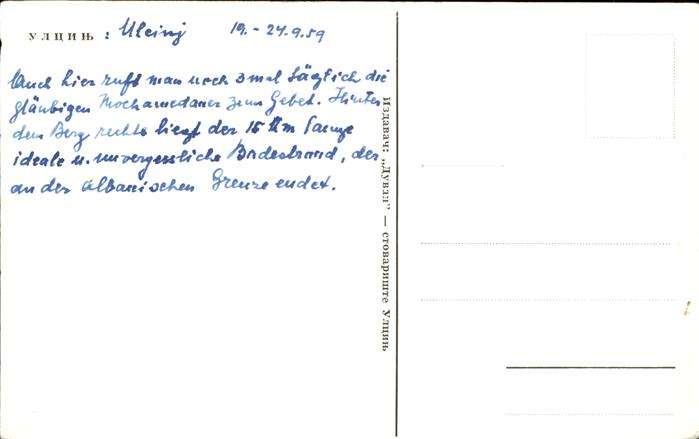 УЛЦИЊ : Ulcinj 19.-24.9.59
Auch hier ruft man noch 3 mal täglich die
gläubigen Mochamedaner zum Gebet. Hinter
dem Berg rechts liegt der 15 km lange
ideale u. unvergessliche Badestrand, der
an der albanischen Grenze endet.
Издавач: „Дувзп" — стовариште Улцињ